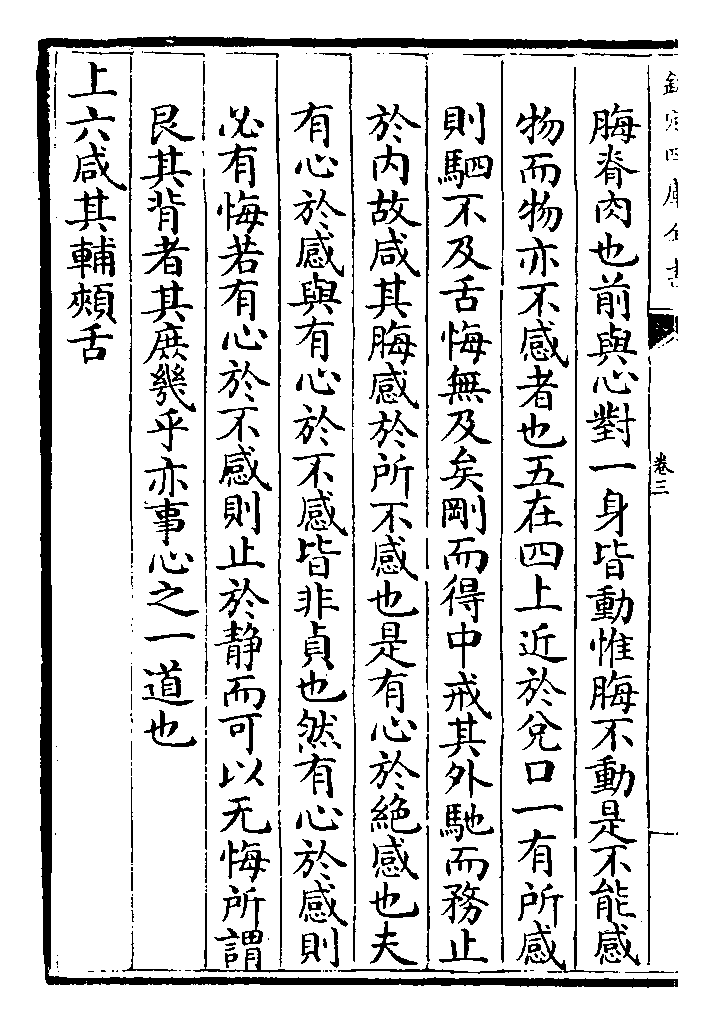 欽定四庫全書
卷三
脢脊肉也前與心對一身皆動惟脢不動是不能感
物而物亦不感者也五在四上近於兌口一有所感
則駟不及舌悔無及矣剛而得中戒其外馳而務止
於内故咸其脢感於所不感也是有心於絶感也夫
有心於感與有心於不感皆非貞也然有心於感則
必有悔若有心於不感則止於静而可以无悔所謂
艮其背者其庶幾乎亦事心之一道也
上六咸其輔頰舌